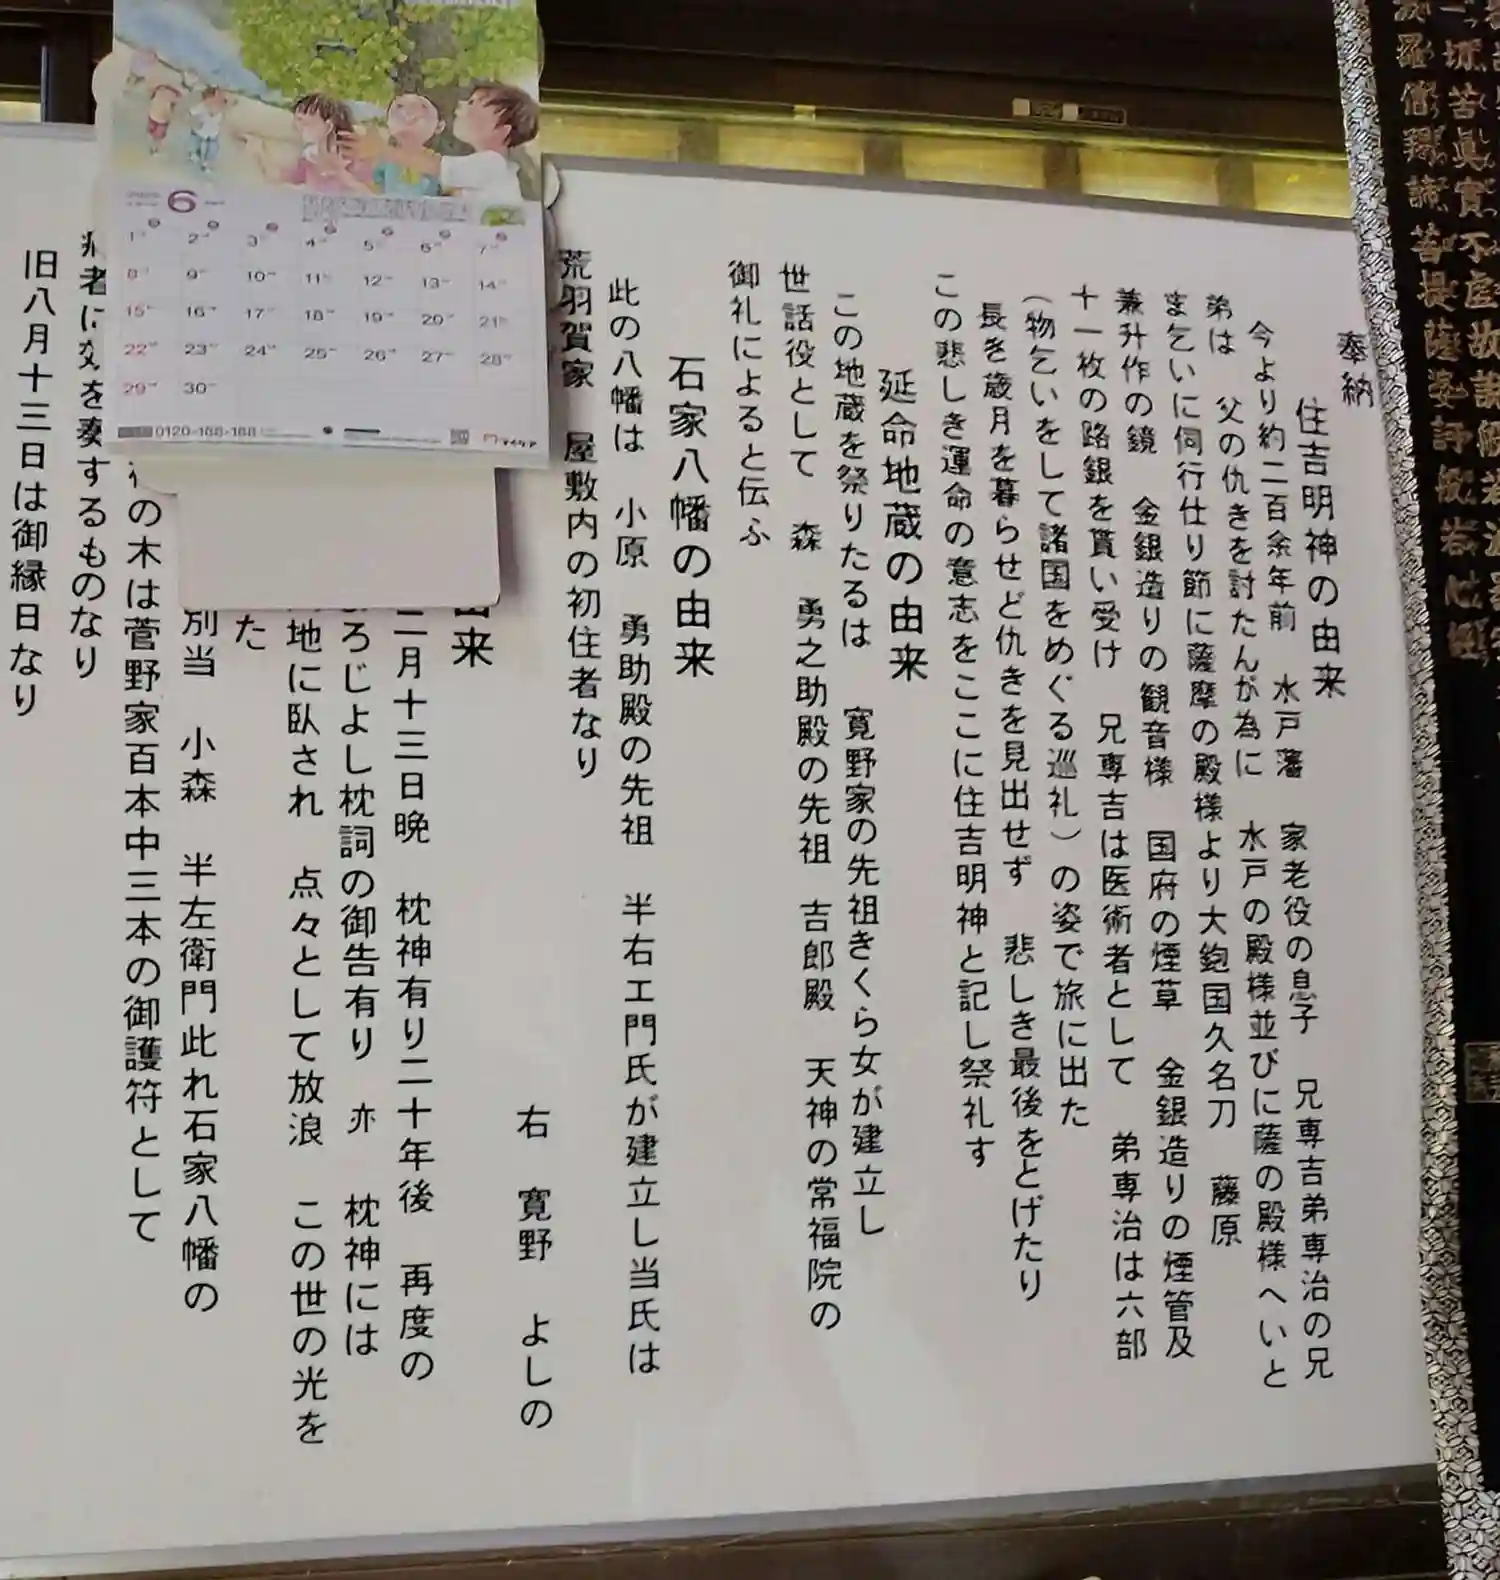 奉納
住吉明神の由来
今より約二百余年前 水戸藩 家老役の息子 兄専吉弟専治の兄
弟は 父の仇きを討たんが為に 水戸の殿様並びに薩の殿様へいと
ま乞いに伺行仕り節に薩摩の殿様より大鉋国久名刀 藤原
兼升作の鏡 金銀造りの観音様 国府の煙草 金銀造りの煙管及
十一枚の路銀を貰い受け 兄専吉は医術者として 弟専治は六部
(物乞いをして諸国をめぐる巡礼)の姿で旅に出た
長き歳月を暮らせど仇きを見出せず 悲しき最後をとげたり
この悲しき運命の意志をここに住吉明神と記し祭礼す
延命地蔵の由来
この地蔵を祭りたるは 寛野家の先祖きくら女が建立し
世話役として 森 勇之助殿の先祖 吉郎殿 天神の常福院の
御礼によると伝ふ
石家八幡の由来
此の八幡は 小原 勇助殿の先祖 半右エ門氏が建立し当氏は
荒羽賀家 屋敷内の初住者なり
右 寛野 よしの
由来
二月十三日晩 枕神有り二十年後 再度の
ろじよし枕詞の御告有り 亦 枕神には
地に臥され 点々として放浪 この世の光を
た
別当 小森 半左衛門此れ石家八幡の
の木は菅野家百本中三本の御護符として
病者に効を奏するものなり
旧八月十三日は御縁日なり
6
1 2 3 4 5 6 7
8 9 10 11 12 13 14
15 16 17 18 19 20 21
22 23 24 25 26 27 28
29 30
0120-168-168